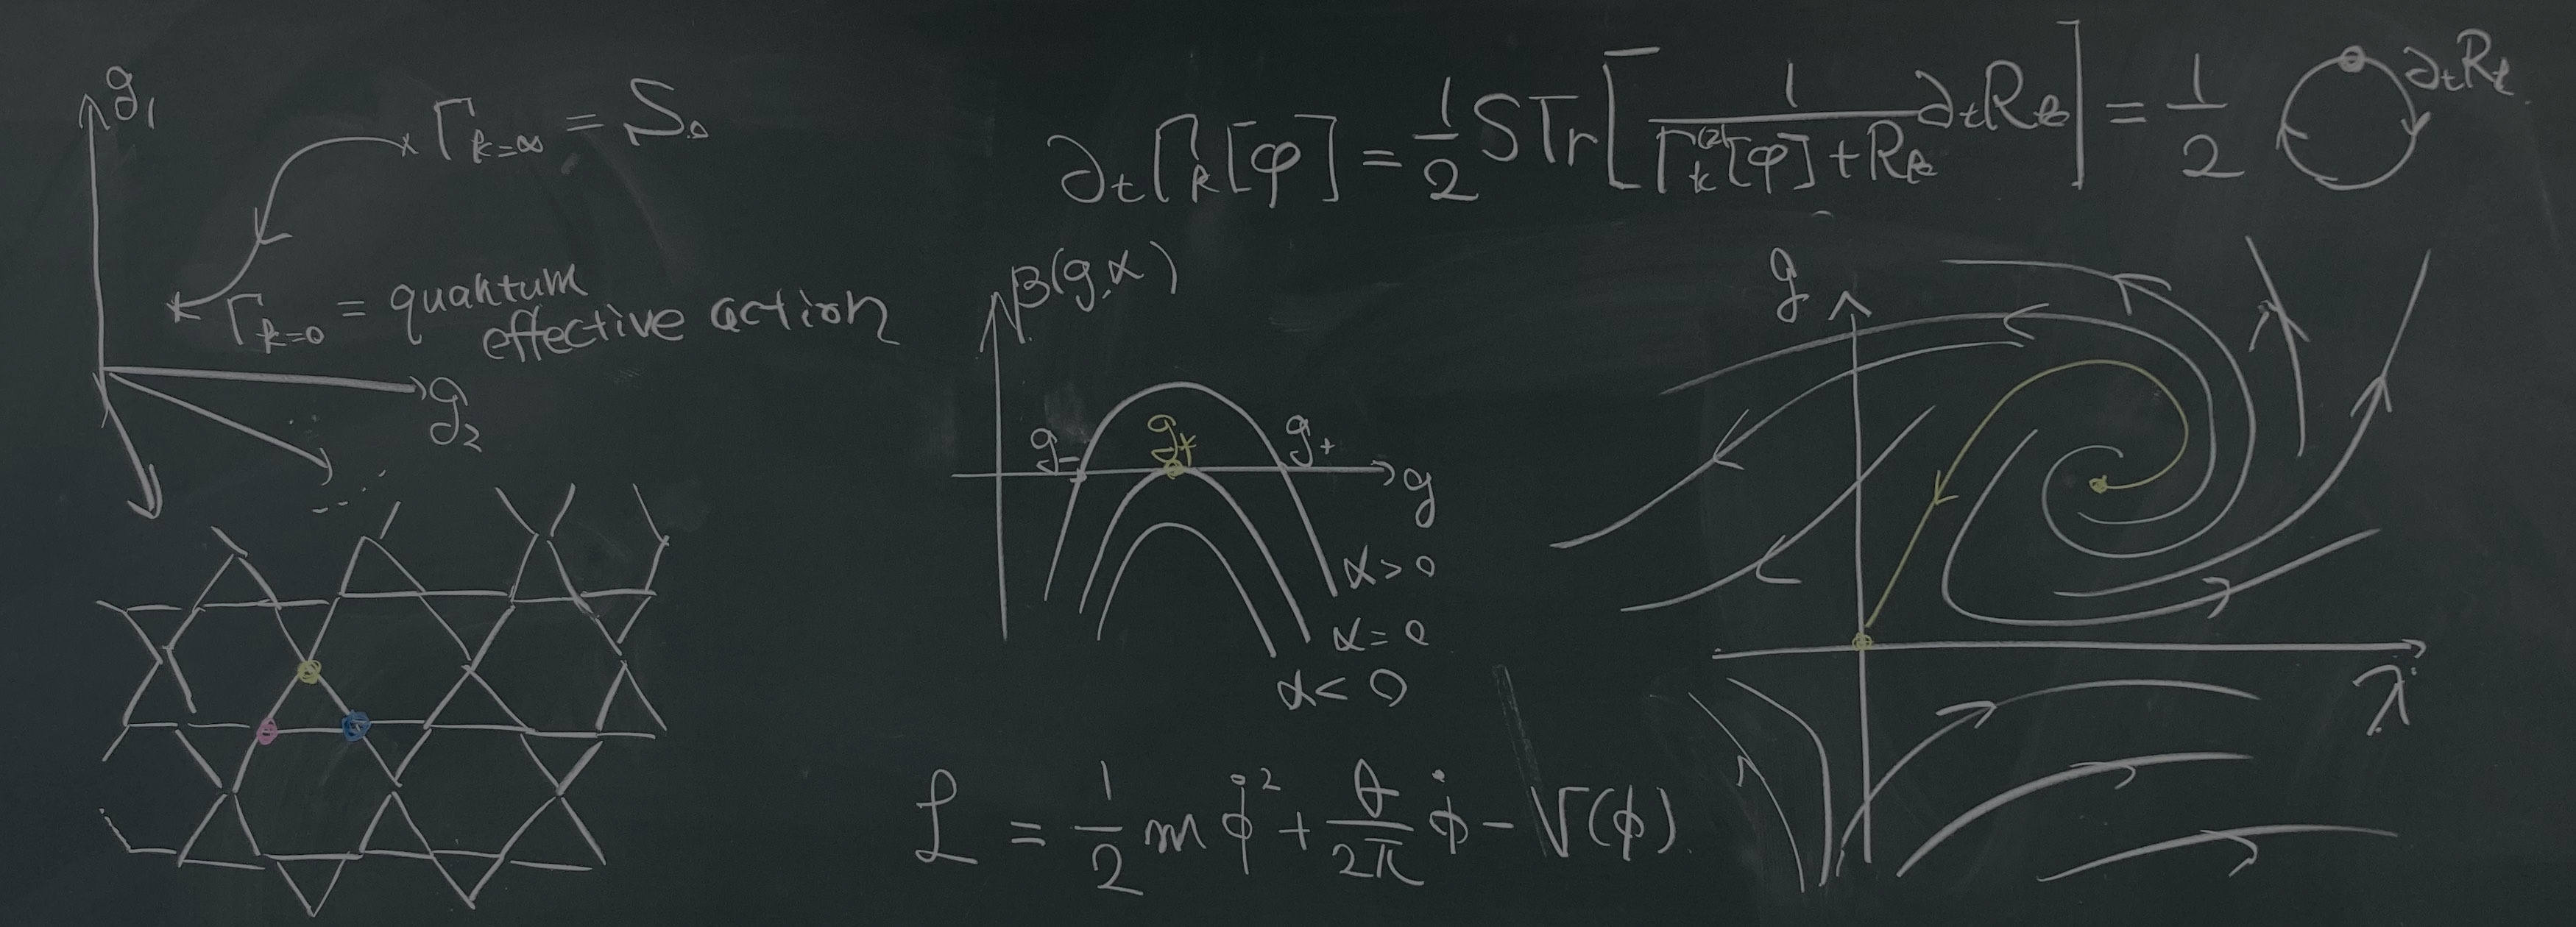 g₁
Γ_{k=∞} = S₀
Γ_{k=0} = quantum
effective action
g₂
∂_t Γ_k[φ] = 1/2 STr[1/(Γ_k^{(2)}[φ] + R_k) ∂_t R_k] = 1/2 ∂_t R_k
β(g,α)
g₋ g_* g₊
g
α > 0
α = 0
α < 0
g
λ
ℒ = 1/2 m φ̇² + θ/2π φ̇ − V(φ)